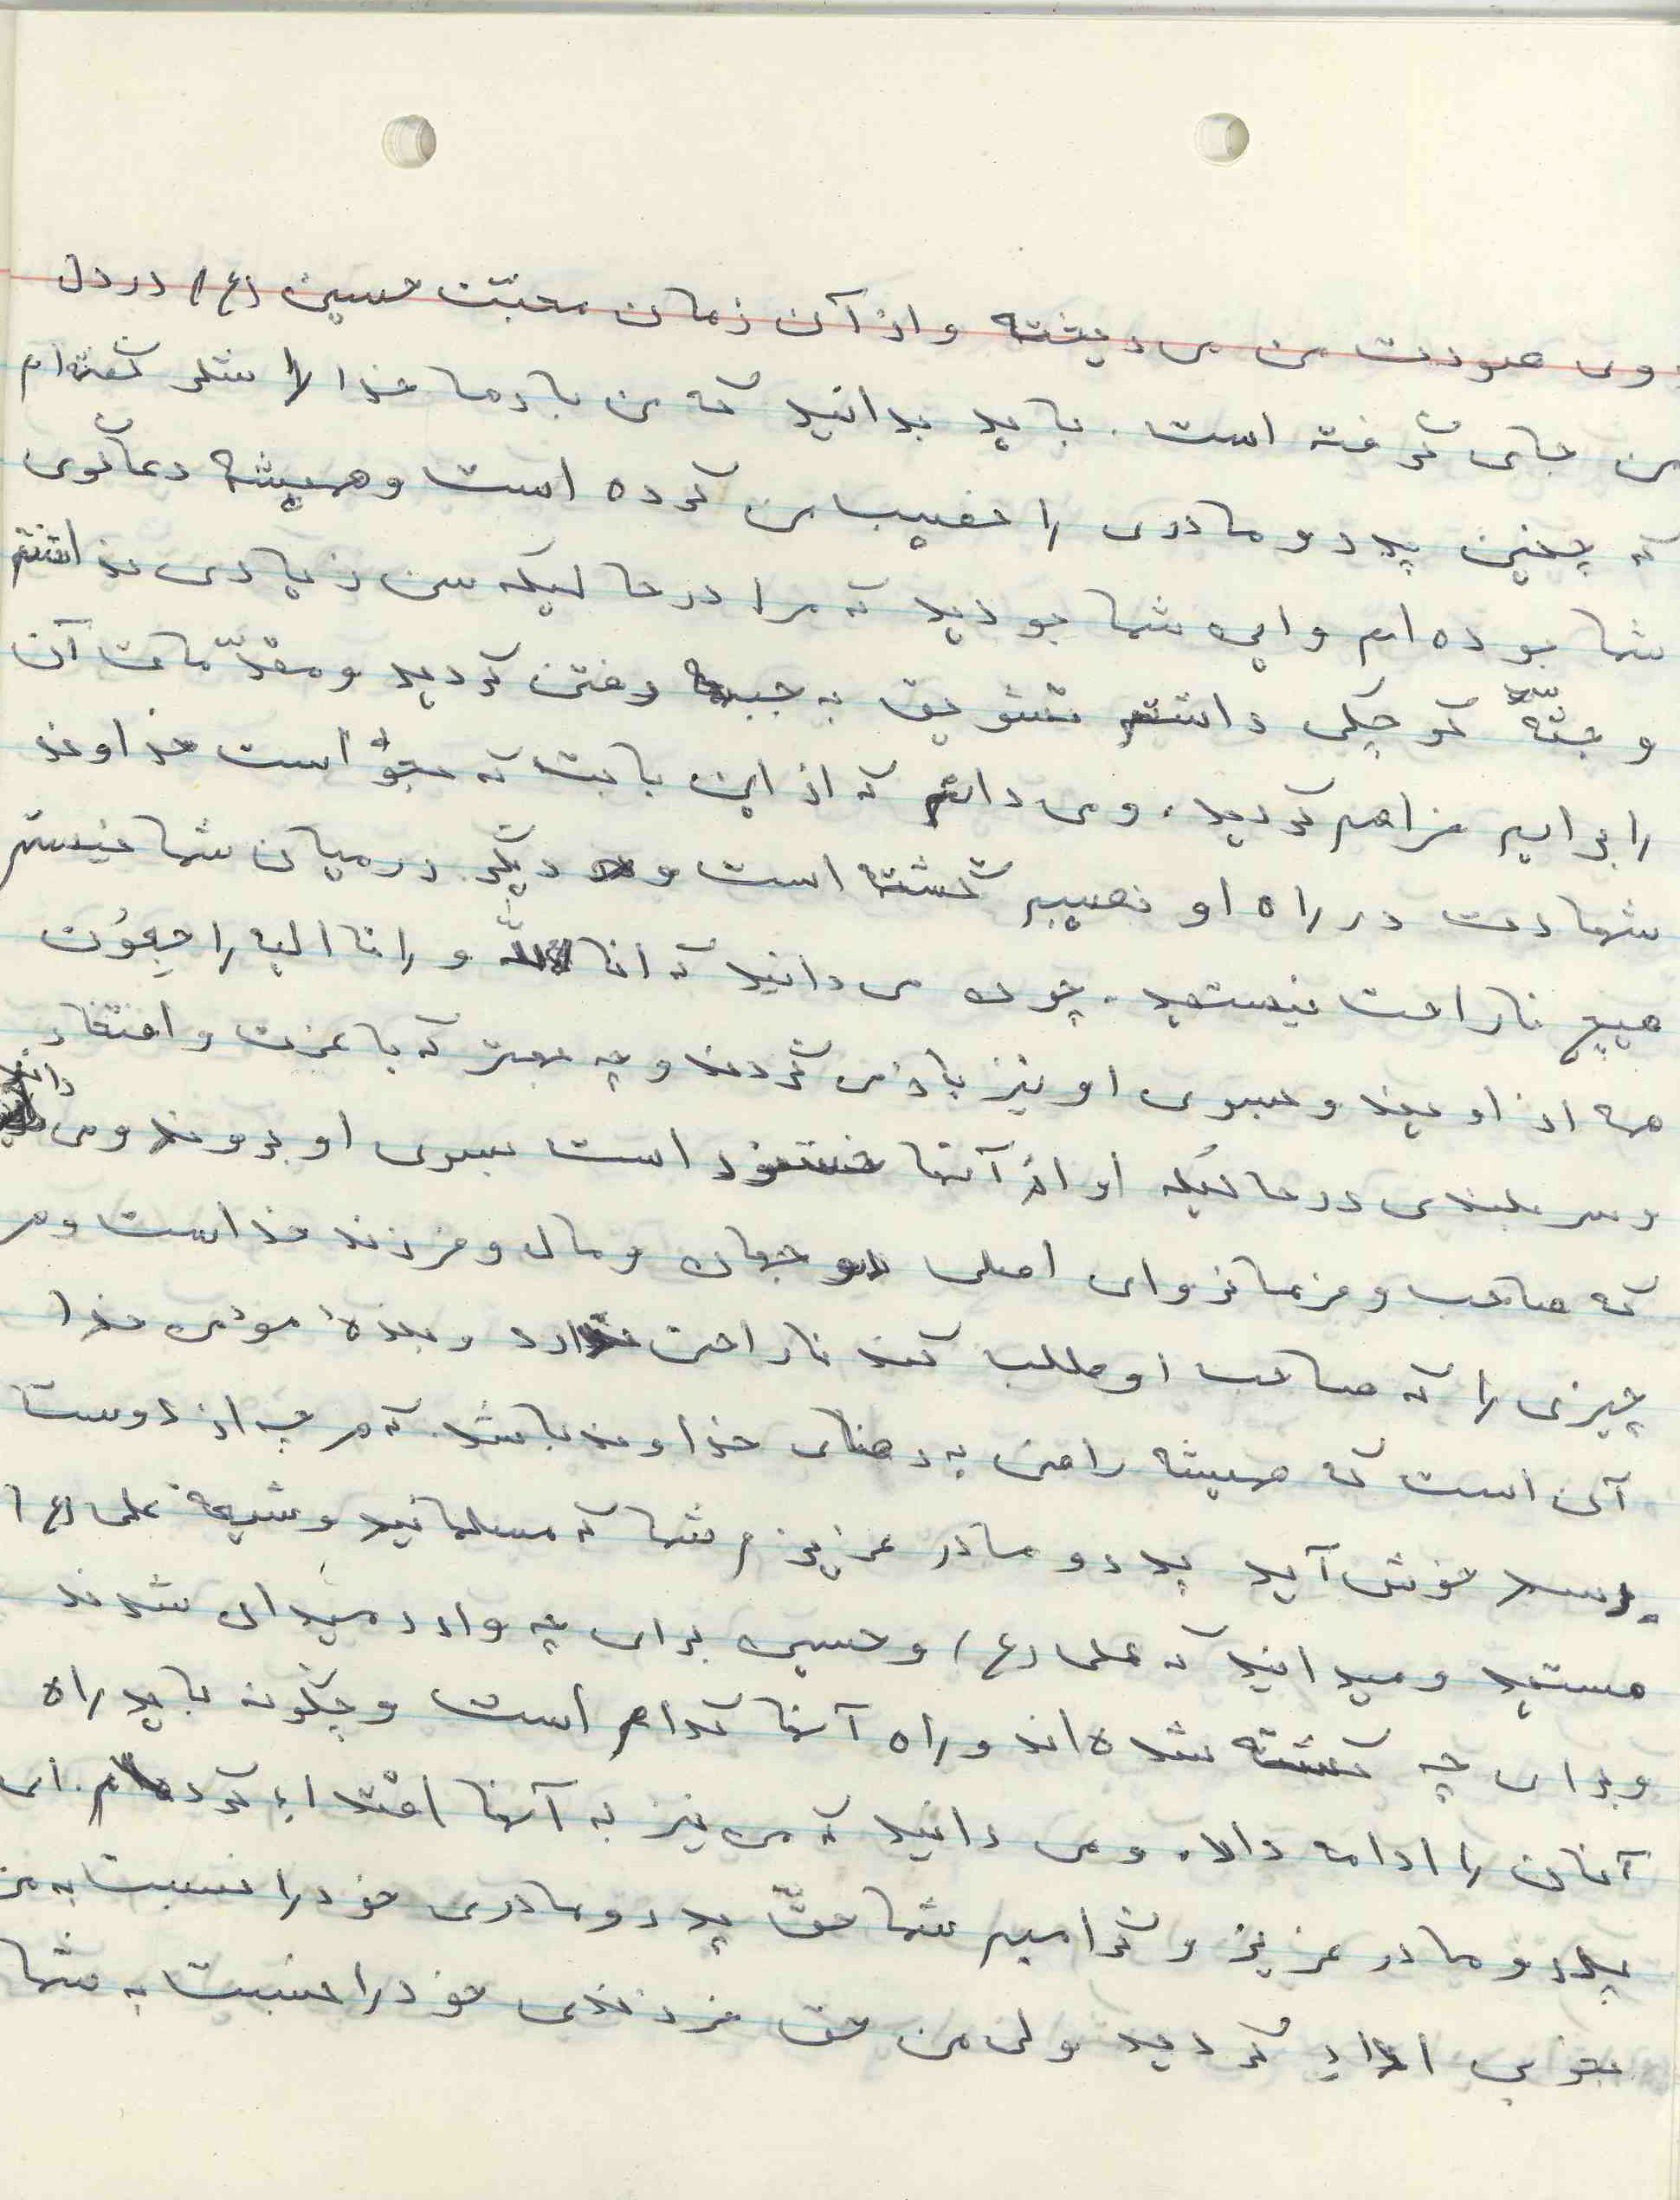 روی صورت من می ریخته و از آن زمان محبّت حسین (ع) در دل
من جای گرفته است. باید بدانید که من بارها خدا را شکر گفته‌ام
که چنین پدر و مادری را نصیب من کرده است و همیشه دعاگوی
شما بوده‌ام و این شما بودید که مرا در حالیکه سن زیادی نداشتم
و جثّه کوچکی داشتم تشویق به جبهه رفتن کردید و مقدّمات آن
را برایم فراهم کردید. و می دانم که از این بابت که خداوند
شهادت در راه او نصیبم گشته است و دیگر در میان شما نیستم
هیچ ناراحت نیستید. چون می دانید که انا لله و انا الیه راجعُون
همه از او یند و بسوی او نیز باز می گردند و چه بهتر که با عزت و افتخار
و سر بلندی در حالیکه او از آنها خشنود است بسوی او بروند و می دانید
که صاحب و فرمانروای اصلی جهان و مال و فرزند خداست و هر
چیزی را که صاحب او طلب کند ناراحتی ندارد و بندهٔ مؤمن خدا
آن است که همیشه راضی به رضای خداوند باشد. که هر چه از دوست
رسد خوش آید پدر و مادر عزیزم شما که مسلمانید و شیعهٔ علی (ع)
هستید و میدانید که علی (ع) و حسین برای چه وارد میدان شدند
و برای چه کشته شده‌اند و راه آنها کدام است و چگونه باید راه
آنان را ادامه داد. و می دانید که من نیز به آنها اقتداء کرده‌ام. ای
پدر و مادر عزیز و گرامیم شما حقّ پدر و مادری خود را نسبت به من
بخوبی اداء کردید ولی من حق فرزندی خود را نسبت به شما